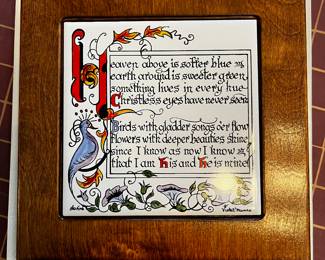 Heaven above is softer blue
earth around is sweeter green,
something lives in every hue
Christless eyes have never seen
Birds with gladder songs oer flow
flowers with deeper beauties shine
since I know as now I know
that I am His and He is mine